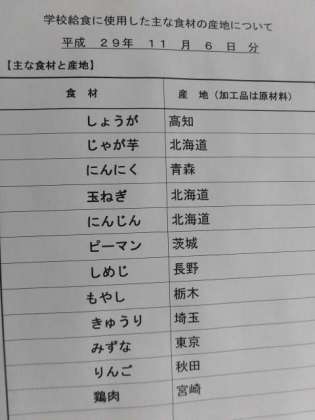 学校給食に使用した主な食材の産地について
平成 29年 11 月 6 日 分
【主な食材と産地】
食 材 産 地（加工品は原材料）
しょうが 高知
じゃが芋 北海道
にんにく 青森
玉ねぎ 北海道
にんじん 北海道
ピーマン 茨城
しめじ 長野
もやし 栃木
きゅうり 埼玉
みずな 東京
りんご 秋田
鶏肉 宮崎